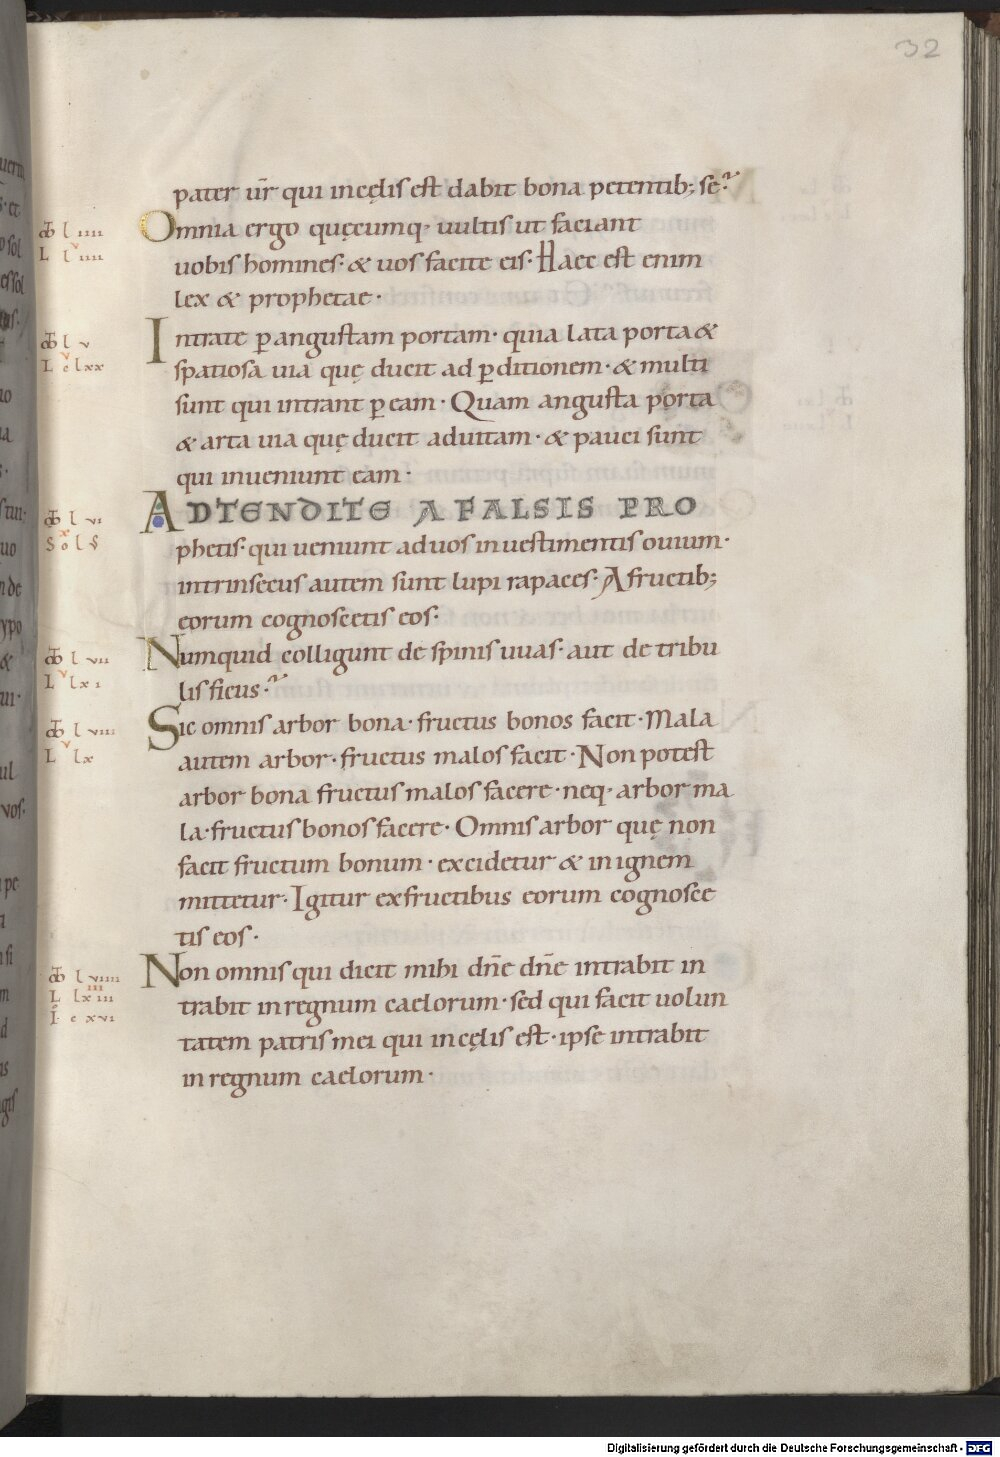 32
pater ur̄ qui incęlis est dabit bona petentib; se?
Omnia ergo quęcumq· uultis ut faciant
uobis homines· & uos facite eis· Haec est enim
lex & prophetae·
Intrate ꝑ angustam portam· quia lata porta &
spatiosa uia quę ducit ad ꝑditionem· & multi
sunt qui intrant ꝑ eam· Quam angusta porta
& arta uia quę ducit aduitam· & pauci sunt
qui inueniunt eam·
ADTENDITE A FALSIS PRO
phetis· qui ueniunt aduos inuestimentis ouium·
intrinsecus autem sunt lupi rapaces· A fructib;
eorum cognoscetis eos·
Numquid colligunt de spinis uuas· aut de tribu
lis ficus·?
Sic omnis arbor bona· fructus bonos facit· Mala
autem arbor· fructus malos facit· Non potest
arbor bona fructus malos facere· neq· arbor ma
la· fructus bonos facere· Omnis arbor quę non
facit fructum bonum· excidetur & inignem
mittetur· Igitur exfructibus eorum cognosce
tis eos·
Non omnis qui dicit mihi dn̄e dn̄e intrabit in
trabit inregnum caelorum· sed qui facit uolun
tatem patris mei qui incęlis est· ipse intrabit
inregnum caelorum·
l iiii
L l iiii
l v
L c lxx
l vi
l vii
L lxi
l viii
L lx
l viiii
L lxiii
I c xvi
Digitalisierung gefördert durch die Deutsche Forschungsgemeinschaft - DFG